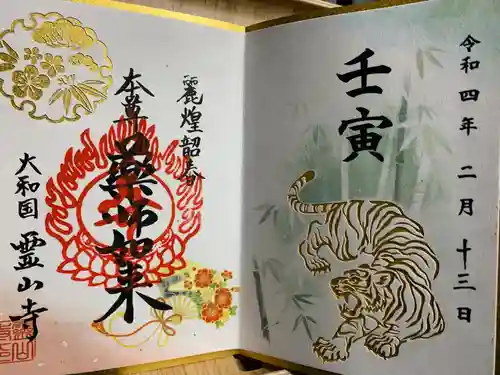 令和四年二月十三日
壬寅
麗煌韶春
本尊薬師如来
大和国
霊山寺